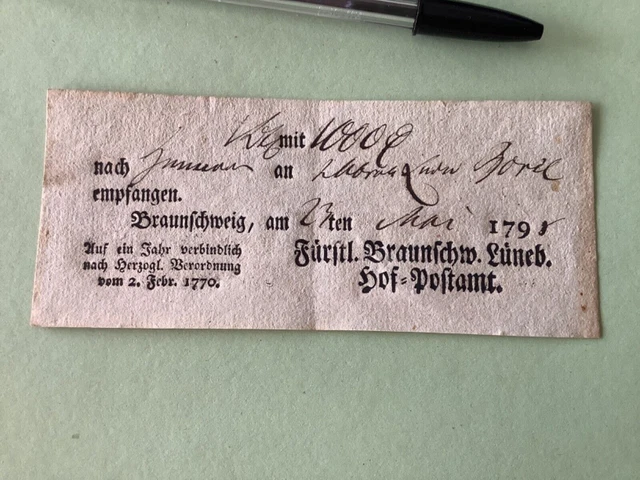 mit 1000
nach an
empfangen.
Braunschweig, am 23ten Mai 1798
Auf ein Jahr verbindlich
nach Herzogl. Verordnung
vom 2. Febr. 1770.
Fürstl. Braunschw. Lüneb.
Hof-Postamt.